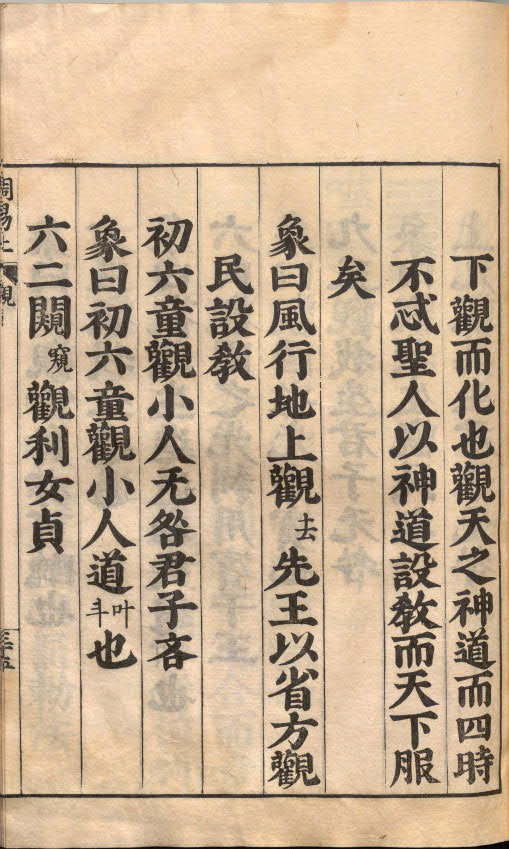 下觀而化也觀天之神道而四時
不忒聖人以神道設敎而天下服
矣
象曰風行地上觀去先王以省方觀
民設敎
初六童觀小人无咎君子吝
象曰初六童觀小人道叶斗也
六二闚窺觀利女貞
周易上 觀 三十五